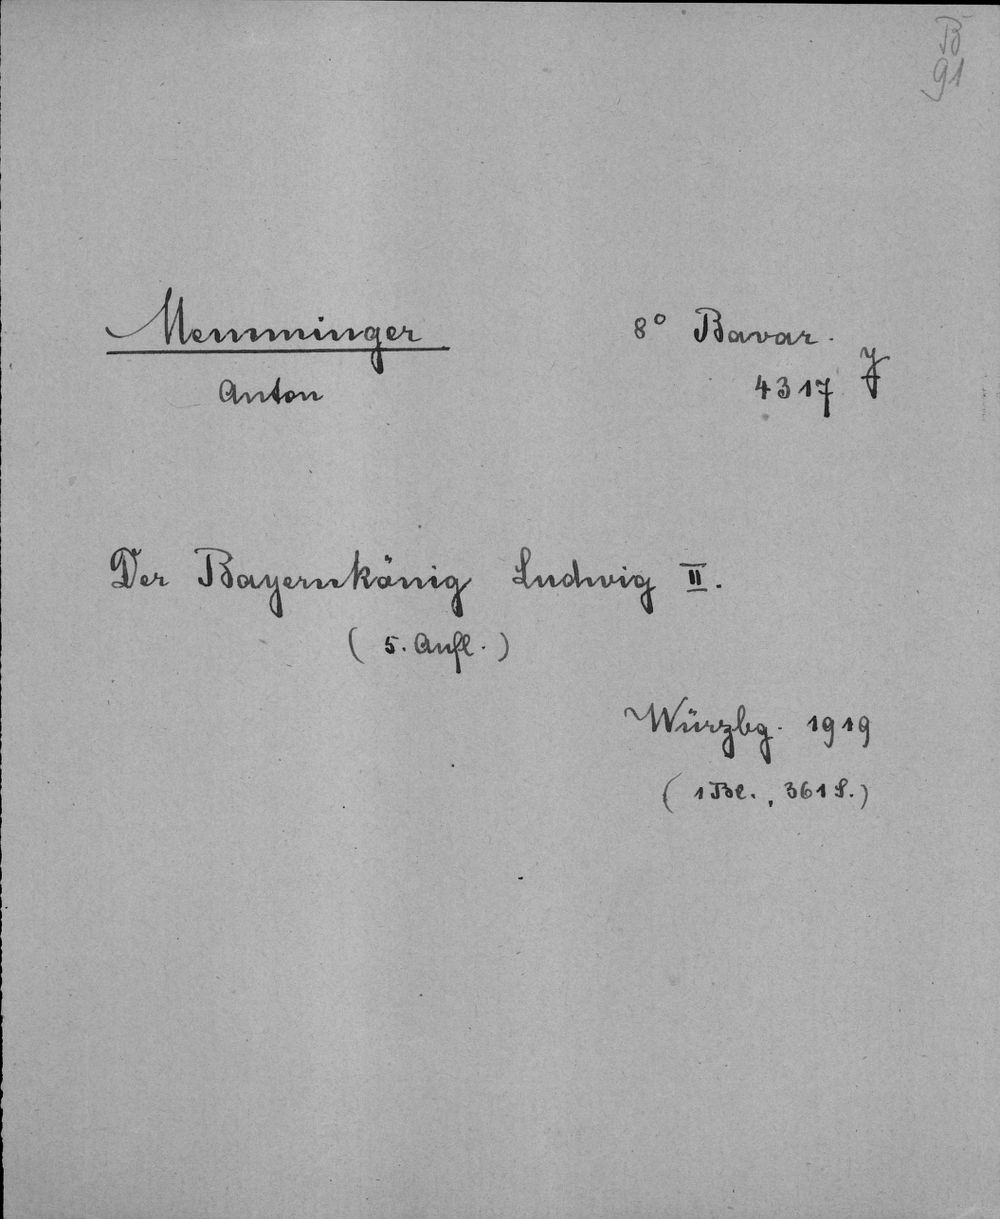 B
91
Memminger
Anton
8° Bavar.
4317 y
Der Bayernkönig Ludwig II.
( 5. Aufl. )
Würzbg. 1919
( 1 Bl. , 361 S. )